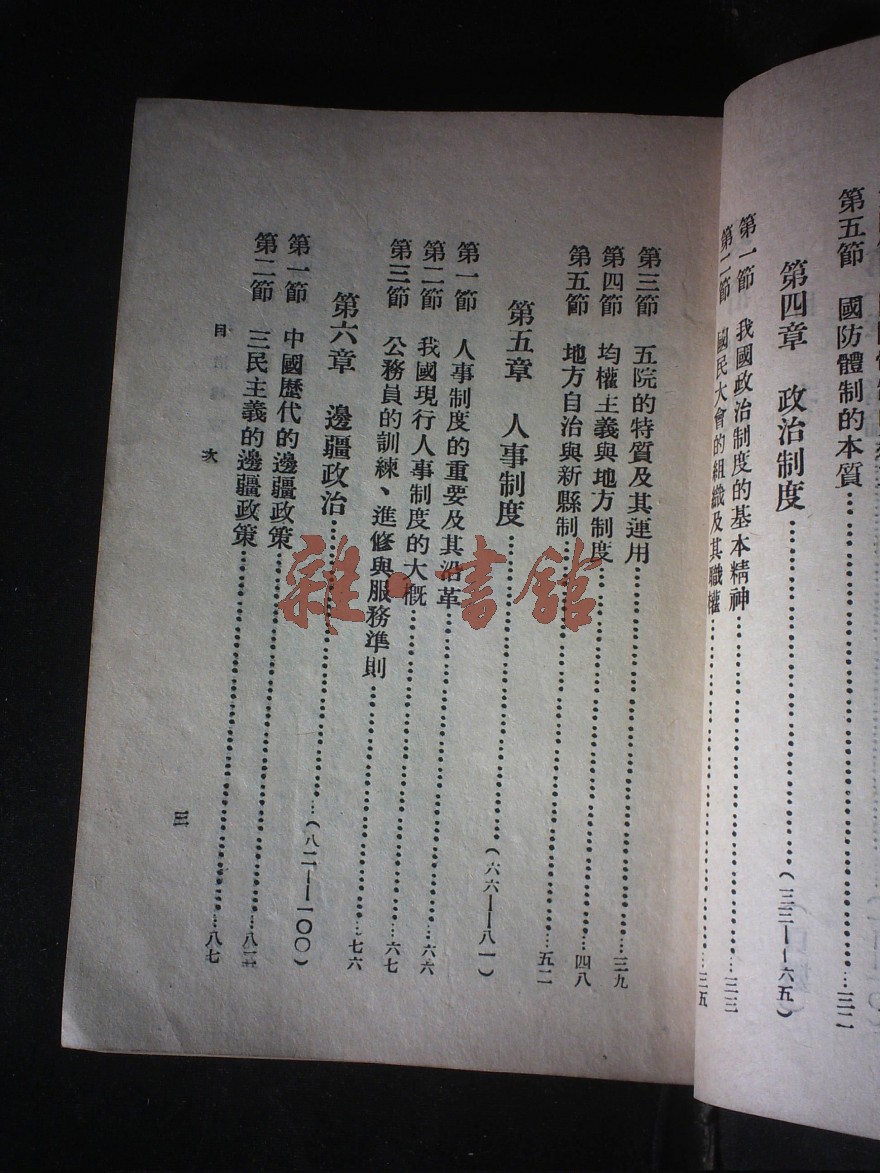 第五節 國防體制的本質……三二
第四章 政治制度……(三三——六五)
第一節 我國政治制度的基本精神……三三
第二節 國民大會的組織及其職權……三五
第三節 五院的特質及其運用……三九
第四節 均權主義與地方制度……四八
第五節 地方自治與新縣制……五二
第五章 人事制度……(六六——八一)
第一節 人事制度的重要及其沿革……六六
第二節 我國現行人事制度的大概……六七
第三節 公務員的訓練、進修與服務準則……七六
第六章 邊疆政治……(八二——一〇〇)
第一節 中國歷代的邊疆政策……八二
第二節 三民主義的邊疆政策……八七
目次
三
雜·書館